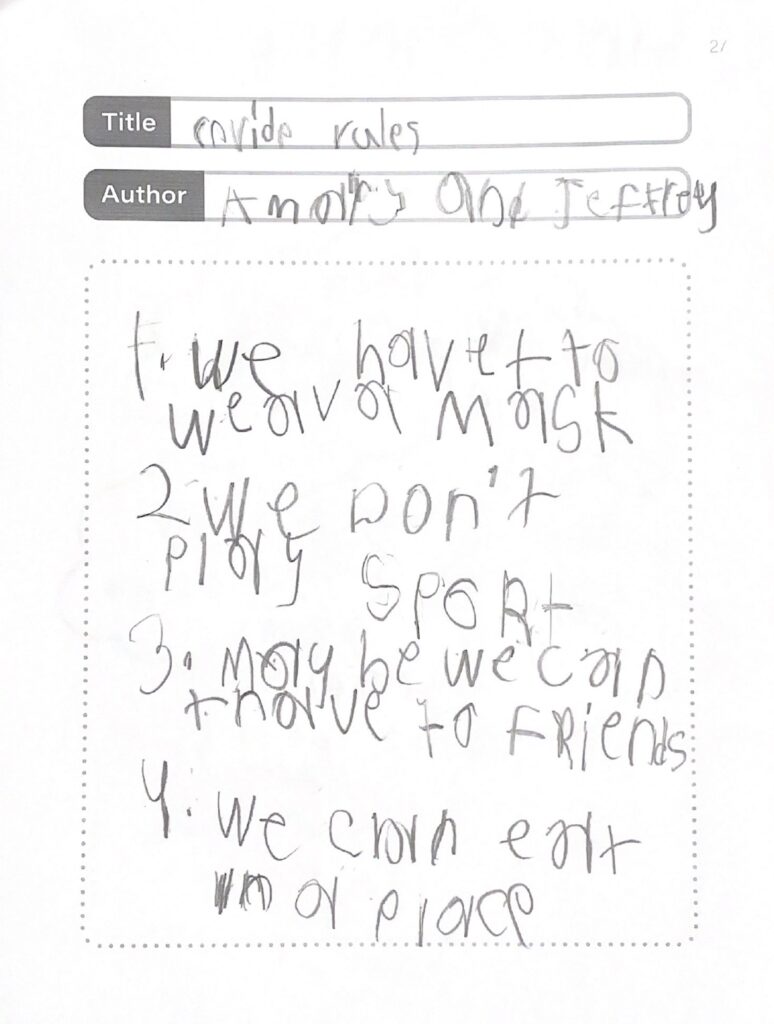 27
Title covide rules
Author Amary and Jeffrey
1. we havet to
wear a mask
2 we Don't
play sport
3. may be we can
thave to friends
4. we can eat
in a place